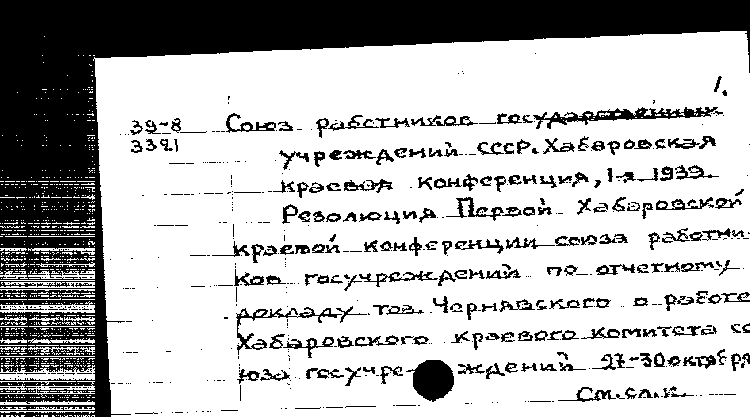 1.
39-8 Союз работников государственных
3321 учреждений СССР. Хабаровская
краевая конференция, 1-я. 1939.
Резолюция Первой Хабаровской
краевой конференции союза работни-
ков госучреждений по отчетному
докладу тов. Чернявского о работе
Хабаровского краевого комитета со-
юза госучре-ждений 27-30 октября
См. сл. к.